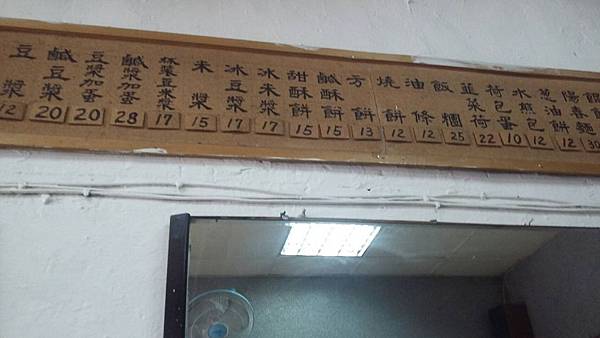 豆漿 12
鹹豆漿 20
豆漿加蛋 20
鹹漿加蛋 28
杯裝豆米漿 17
米漿 15
冰豆漿 17
冰米漿 17
甜酥餅 15
鹹酥餅 15
方餅 13
燒餅 12
油條 12
飯糰 25
韮菜荷 22
荷包蛋 10
水煎包 12
蔥油餅 12
陽春麵 30